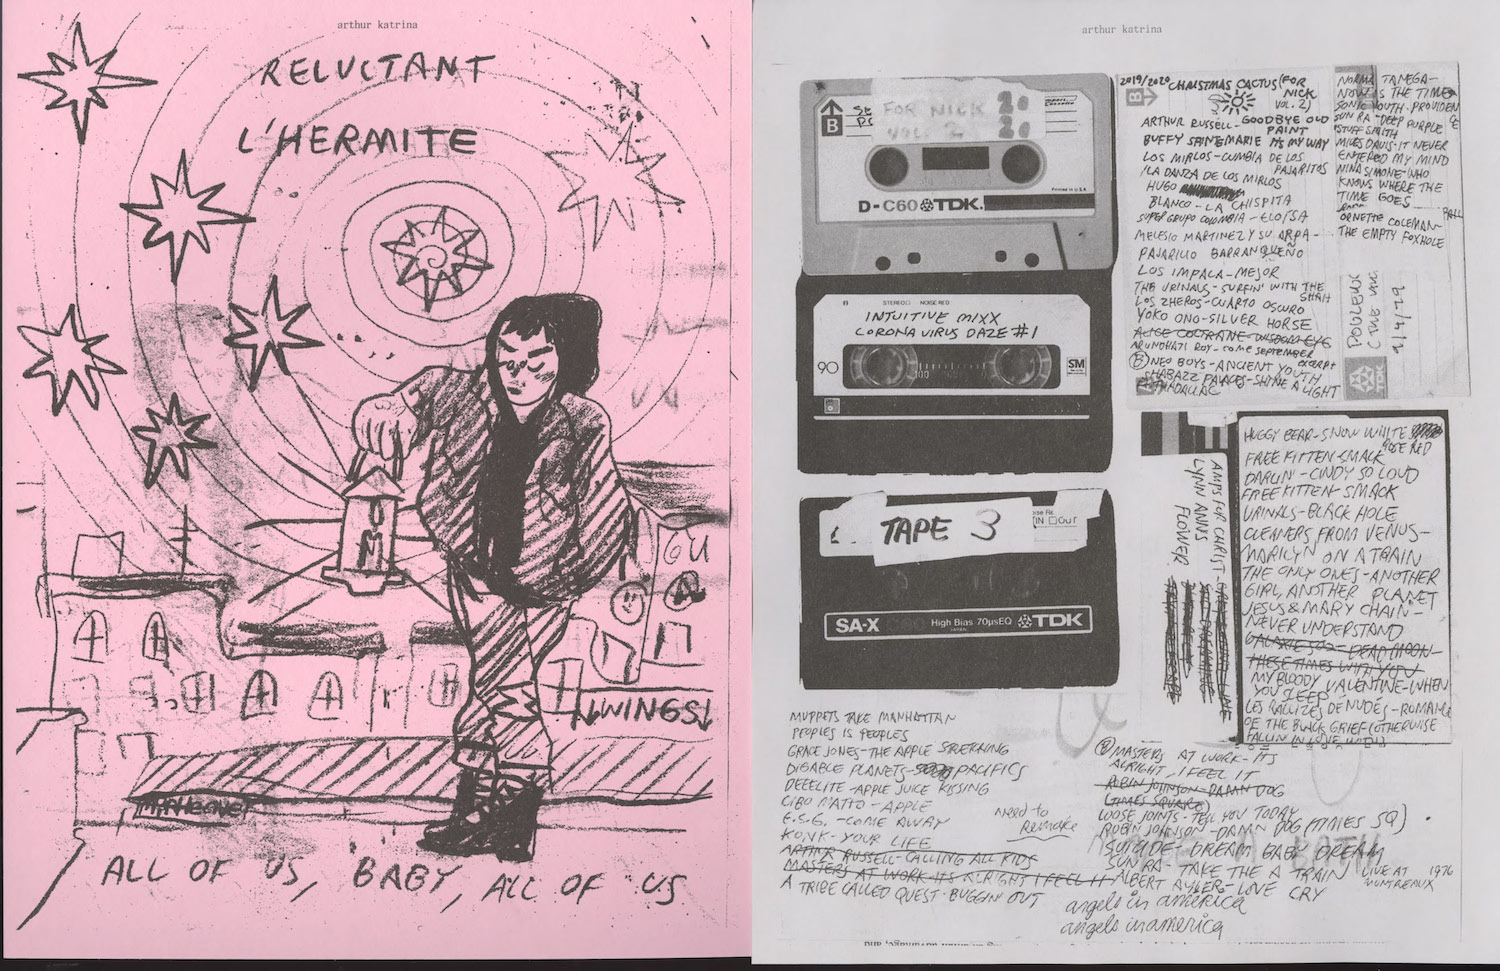 arthur katrina
RELUCTANT
L'HERMITE
WINGS
ALL OF US, BABY, ALL OF US
arthur katrina
B
FOR NICK
VOL. 2
D-C60 TDK.
STEREO NOISE RED
INTUITIVE MIXX
CORONA VIRUS DAZE #1
90
SM
TAPE 3
IN OUT
SA-X High Bias 70µsEQ TDK
2019/2020 CHRISTMAS CACTUS (FOR
NICK
VOL. 2)
ARTHUR RUSSELL - GOODBYE OLD
PAINT
BUFFY SAINTE MARIE ITS MY WAY
LOS MIRLOS - CUMBIA DE LOS
PAJARITOS
/LA DANZA DE LOS MIRLOS
HUGO
BLANCO - LA CHISPITA
SUPER GRUPO COLOMBIA - ELOISA
MELESIO MARTINEZ Y SU ARPA -
PAJARILLO BARRANQUEÑO
LOS IMPALA - MEJOR
THE URINALS - SURFIN' WITH THE
SHAH
LOS ZHEROS - CUARTO OSCURO
YOKO ONO - SILVER HORSE
ALICE COLTRANE - WISDOM EYE
ARUNDHATI ROY - COME SEPTEMBER
EXCERPT
B NEO BOYS - ANCIENT YOUTH
SHABAZZ PALACES - SHINE A LIGHT
NORMA TANEGA -
NOW IS THE TIME
SONIC YOUTH - PROVIDENCE
SUN RA - DEEP PURPLE
STUFF SMITH
MILES DAVIS - IT NEVER
ENTERED MY MIND
NINA SIMONE - WHO
KNOWS WHERE THE
TIME GOES
ORNETTE COLEMAN -
THE EMPTY FOXHOLE
TDK
AMPS FOR CHRIST
LYNN ANN'S
FLOWER
HUGGY BEAR - SNOW WHITE
ROSE RED
FREE KITTEN SMACK
DARLIN' - CINDY SO LOUD
FREE KITTEN - SMACK
URINALS - BLACK HOLE
CLEANERS FROM VENUS -
MARILYN ON A TRAIN
THE ONLY ONES - ANOTHER
GIRL, ANOTHER PLANET
JESUS & MARY CHAIN -
NEVER UNDERSTAND
GALAXIE 500 - DEAD MOON -
THESE TIMES WITH YOU
MY BLOODY VALENTINE - WHEN
YOU SLEEP
LES RALLIZES DENUDES - ROMANCE
OF THE BLACK GRIEF (OTHERWISE
FALLIN IN LOVE WITH)
MUPPETS TAKE MANHATTAN
PEOPLES IS PEOPLES
GRACE JONES - THE APPLE STRETCHING
DIGABLE PLANETS - PACIFICS
DEEELITE - APPLE JUICE KISSING
CIBO MATTO - APPLE
E.S.G. - COME AWAY
KONK - YOUR LIFE
ARTHUR RUSSELL - CALLING ALL KIDS
MASTERS AT WORK - ITS ALRIGHT I FEEL IT
A TRIBE CALLED QUEST - BUGGIN OUT
need to
Remake
B MASTERS AT WORK - ITS
ALRIGHT, I FEEL IT
ROBIN JOHNSON - DAMN DOG
(TIMES SQUARE)
LOOSE JOINTS - TELL YOU TODAY
ROBIN JOHNSON - DAMN DOG (TIMES SQ)
SUICIDE - DREAM BABY DREAM
SUN RA - TAKE THE A TRAIN LIVE AT 1976
MONTREAUX
ALBERT AYLER - LOVE CRY
angels in america
angels in america